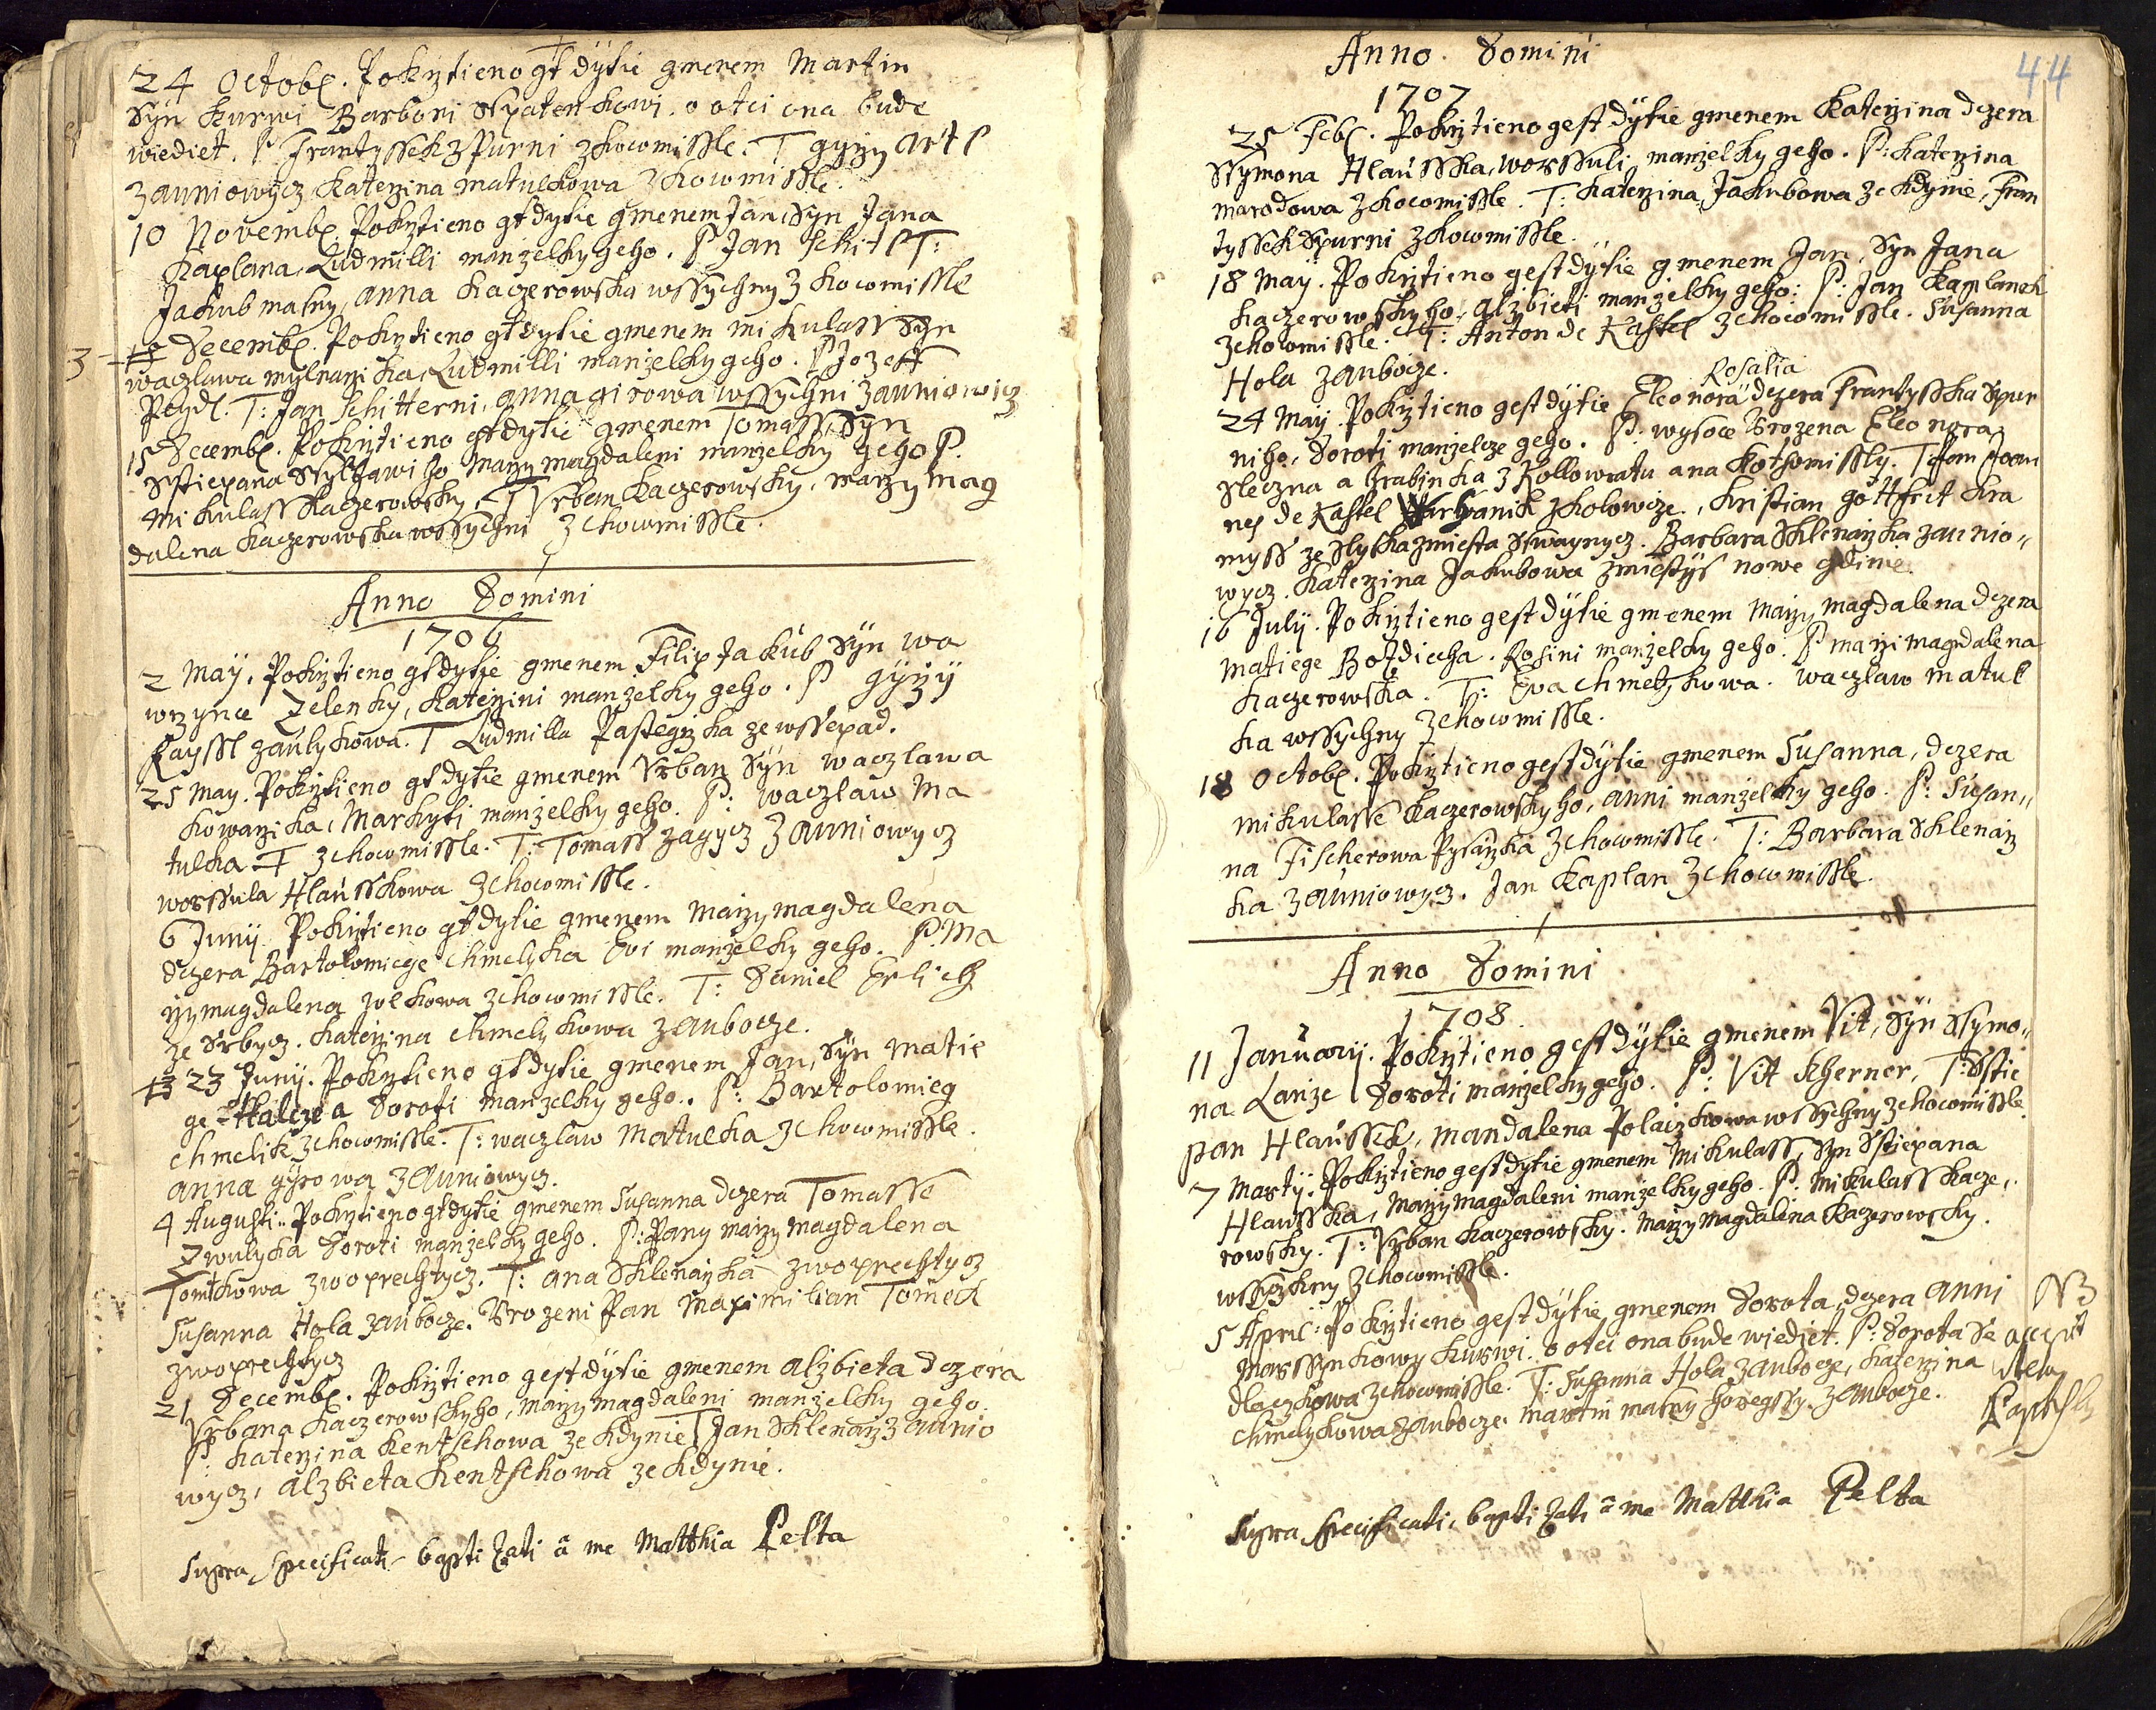 24 Octobr. Pokrztieno gt dytie gmenem Martin
Syn kurwi Barbori Sspatenkowi. o otci ona bude
wiediet. P: Frantyssek Spurni z kocomissle. T gyrzy
z auniowycz Katerzina matulkowa z kocomissle.
10 Novembr. Pokrztieno gt dytie gmenem Jan Syn Jana
Kaplana, Ludmilli manzelky geho. P Jan Schitl T:
Jakub maly, anna kaczerowska wssychny z kocomissle
3 Decembr. Pokrztieno gt dytie gmenem mikulass Syn
waczlawa mylnarzika, Ludmilli manzelky geho. P Jozeff
T: Jan Schitterni, anna girowa wssychni z auniowicz
15 Decembr. Pokrztieno gt dytie gmenem Tomass, Syn
Sstiepana manzelky geho P.
Mikulass Kaczerowsky. T Vrban Kaczerowsky, marzy mag
dalena kaczerowska wssychni z chocomissle.
Anno Domini
1706
2 May. Pokrztieno gt dytie gmenem Filip Jakub Syn wa
wrzynce Zelenky, Katerzini manzelky geho. P gyrzy
Layssl z aulykowa. T Ludmilla Pastegrzka ze wssepad.
25 May. Pokrztieno gt dytie gmenem Vrban Syn waczlawa
kowarzika, Markyti manzelky geho. P: waczlaw Ma
tulka z chocomissle. T: Tomass zagycz z auniowycz
worssula Hlausskowa z chocomissle.
6 Juny. Pokrztieno gt dytie gmenem marzy magdalena
dczera Bartolomiege chmelyka Evi manzelky geho. P: Ma
rzy magdalena wlkowa z chocomissle. T: Daniel Erlich
ze Srbycz. Katerzina chmelykowa z aubocze.
23 Juny. Pokrztieno gt dytie gmenem Jan, Syn matie
ge Halcze a Doroti manzelky geho. P: Bartolomieg
chmelik z chocomissle. T: waczlaw Matulka z chocomissle.
anna gyrowa z auniowycz.
4 Augusti. Pokrztieno gt dytie gmenem Susanna dczera Tomasse
Zwulyka Doroti manzelky geho. P: Pany marzy magdalena
Tomkowa z woprechtycz. T: ana Sklenarzka z woprechtycz
Susanna Hola z aubocze. Vrozeni Pan Maximilian Tomek
z woprechtycz
21 Decembr. Pokrztieno gest dytie gmenem alzbieta dczera
Vrbana Kaczerowskyho, marzy magdaleni manzelky geho.
P: Katerzina Kentschowa ze kdynie T Jan Sklenarz z aunio
wycz, alzbieta Kentschowa ze kdynie.
Supra specificati baptizati a me Matthia Pelta
44
Anno Domini
1707
25 Febr. Pokrztieno gest dytie gmenem Katerzina dczera
Ssymona Hlausska, worssuli manzelky geho. P: Katerzina
marodowa z kocomissle. T: Katerzina Jakubowa ze kdynie, Fran
tyssek Spurni z kocomissle.
18 May. Pokrztieno gest dytie gmenem Jan, Syn Jana
kaczerowskyho, alzbieti manzelky geho: P: Jan Kaplanek
z chocomissle. T: Anton de Kastel z chocomissle. Susanna
Hola z aubocze.
Rosalia
24 May. Pokrztieno gest dytie Eleonora dczera Frantysska Spur
niho, Doroti manzelcze geho. P: wysoce Vrozena Eleonora
Sleczna a Hrabinka z Kollowratu a na Kothomissly. T: Joan
nes de Kastel z kolowicze, Kristian gottfrit kra
myss ze Slyska z miesta Barbara Sklenarzka z aunio
wycz. Katerzina Jakubowa z miestys nowe gdinie.
16 July. Pokrztieno gest dytie gmenem Marzy magdalena dczera
matiege Bozdiecha. Rosini manzelky geho. P marzi magdalena
kaczerowska. T: Eva chmelykowa. waczlaw matul
ka wssychny z chocomissle.
18 Octobr. Pokrztieno gest dytie gmenem Susanna, dczera
mikulasse Kaczerowskyho, anni manzelky geho. P: Susan
na Fischerowa Pysarzka z chocomissle. T: Barbara Sklenarz
ka z auniowycz. Jan Kaplan z chocomissle.
Anno Domini
1708
11 January. Pokrztieno gest dytie gmenem Vit, Syn Ssymo
na Lanze Doroti manzelky geho. P: Vit kherner, T: Sstie
pan Hlaussek, Mandalena Polaczkowa wssychny z chocomissle
7 Marty. Pokrztieno gest dytie gmenem Mikulass, Syn Sstiepana
Hlausska, Marzy magdaleni manzelky geho. P: Mikulass kacze
rowsky. T: Vrban kaczerowsky. Marzy magdalena Kaczerowsky.
wssyckny z chocomissle.
5 April: Pokrztieno gest dytie gmenem Dorota, dczera anni
Marssynkowy kurwi. o otci ona bude wiediet. P: Dorota Se
dlaczkowa z chocomissle. T: Susanna Hola z aubocze, Katerzina
chmelykowa z aubocze. Martin matny horegssy z aubocze.
NB
Supra specificati, baptizati a me Matthia Pelta